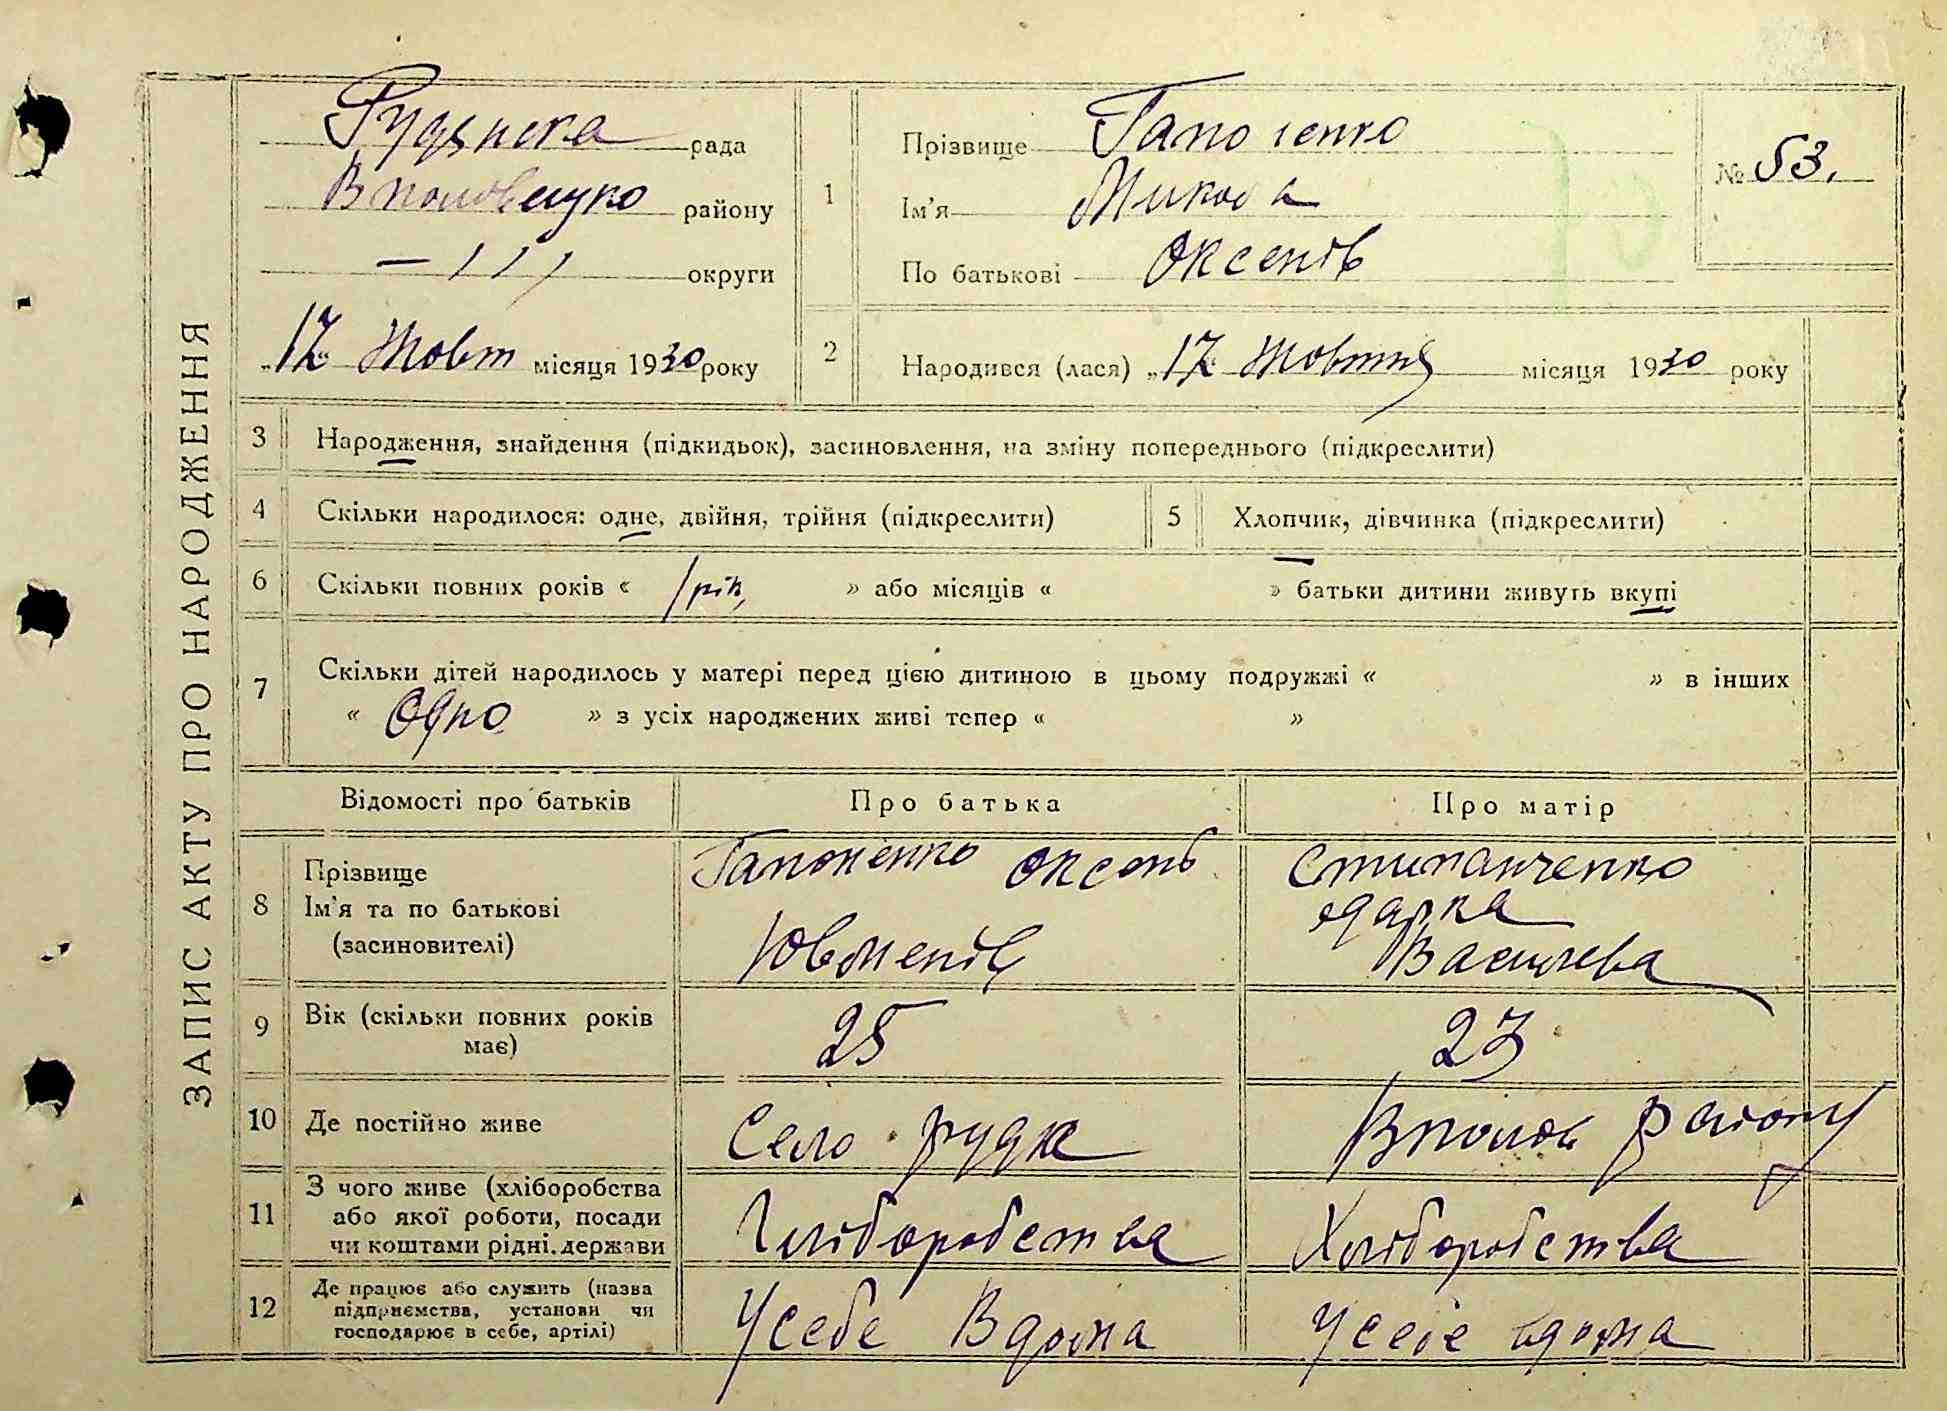 ЗАПИС АКТУ ПРО НАРОДЖЕННЯ
Рудянска рада
району
— ,,, округи
„17“ Жовт місяця 1930 року
1 Прізвище Гапоненко
Ім'я Микола
По батькові Оксенів
№ 53.
2 Народився (лася) „17“ Жовтня місяця 1930 року
3 Народження, знайдення (підкидьок), засиновлення, на зміну попереднього (підкреслити)
4 Скільки народилося: одне, двійня, трійня (підкреслити)
5 Хлопчик, дівчинка (підкреслити)
6 Скільки повних років « 1 рік, » або місяців « » батьки дитини живуть вкупі
7 Скільки дітей народилось у матері перед цією дитиною в цьому подружжі « » в інших
« Одно » з усіх народжених живі тепер « »
Відомості про батьків
Про батька
Про матір
8 Прізвище
Ім'я та по батькові
(засиновителі)
Гапоненко Оксень
Ювменів
Стипанченко
одарка
Василева
9 Вік (скільки повних років
має)
25
23
10 Де постійно живе
Село рудка
району
11 З чого живе (хліборобства
або якої роботи, посади
чи коштами рідні, держави
Хліборобства
Хліборобства
12 Де працює або служить (назва
підприємства, установи чи
господарює в себе, артілі)
Усебе Вдома
Усебе вдома